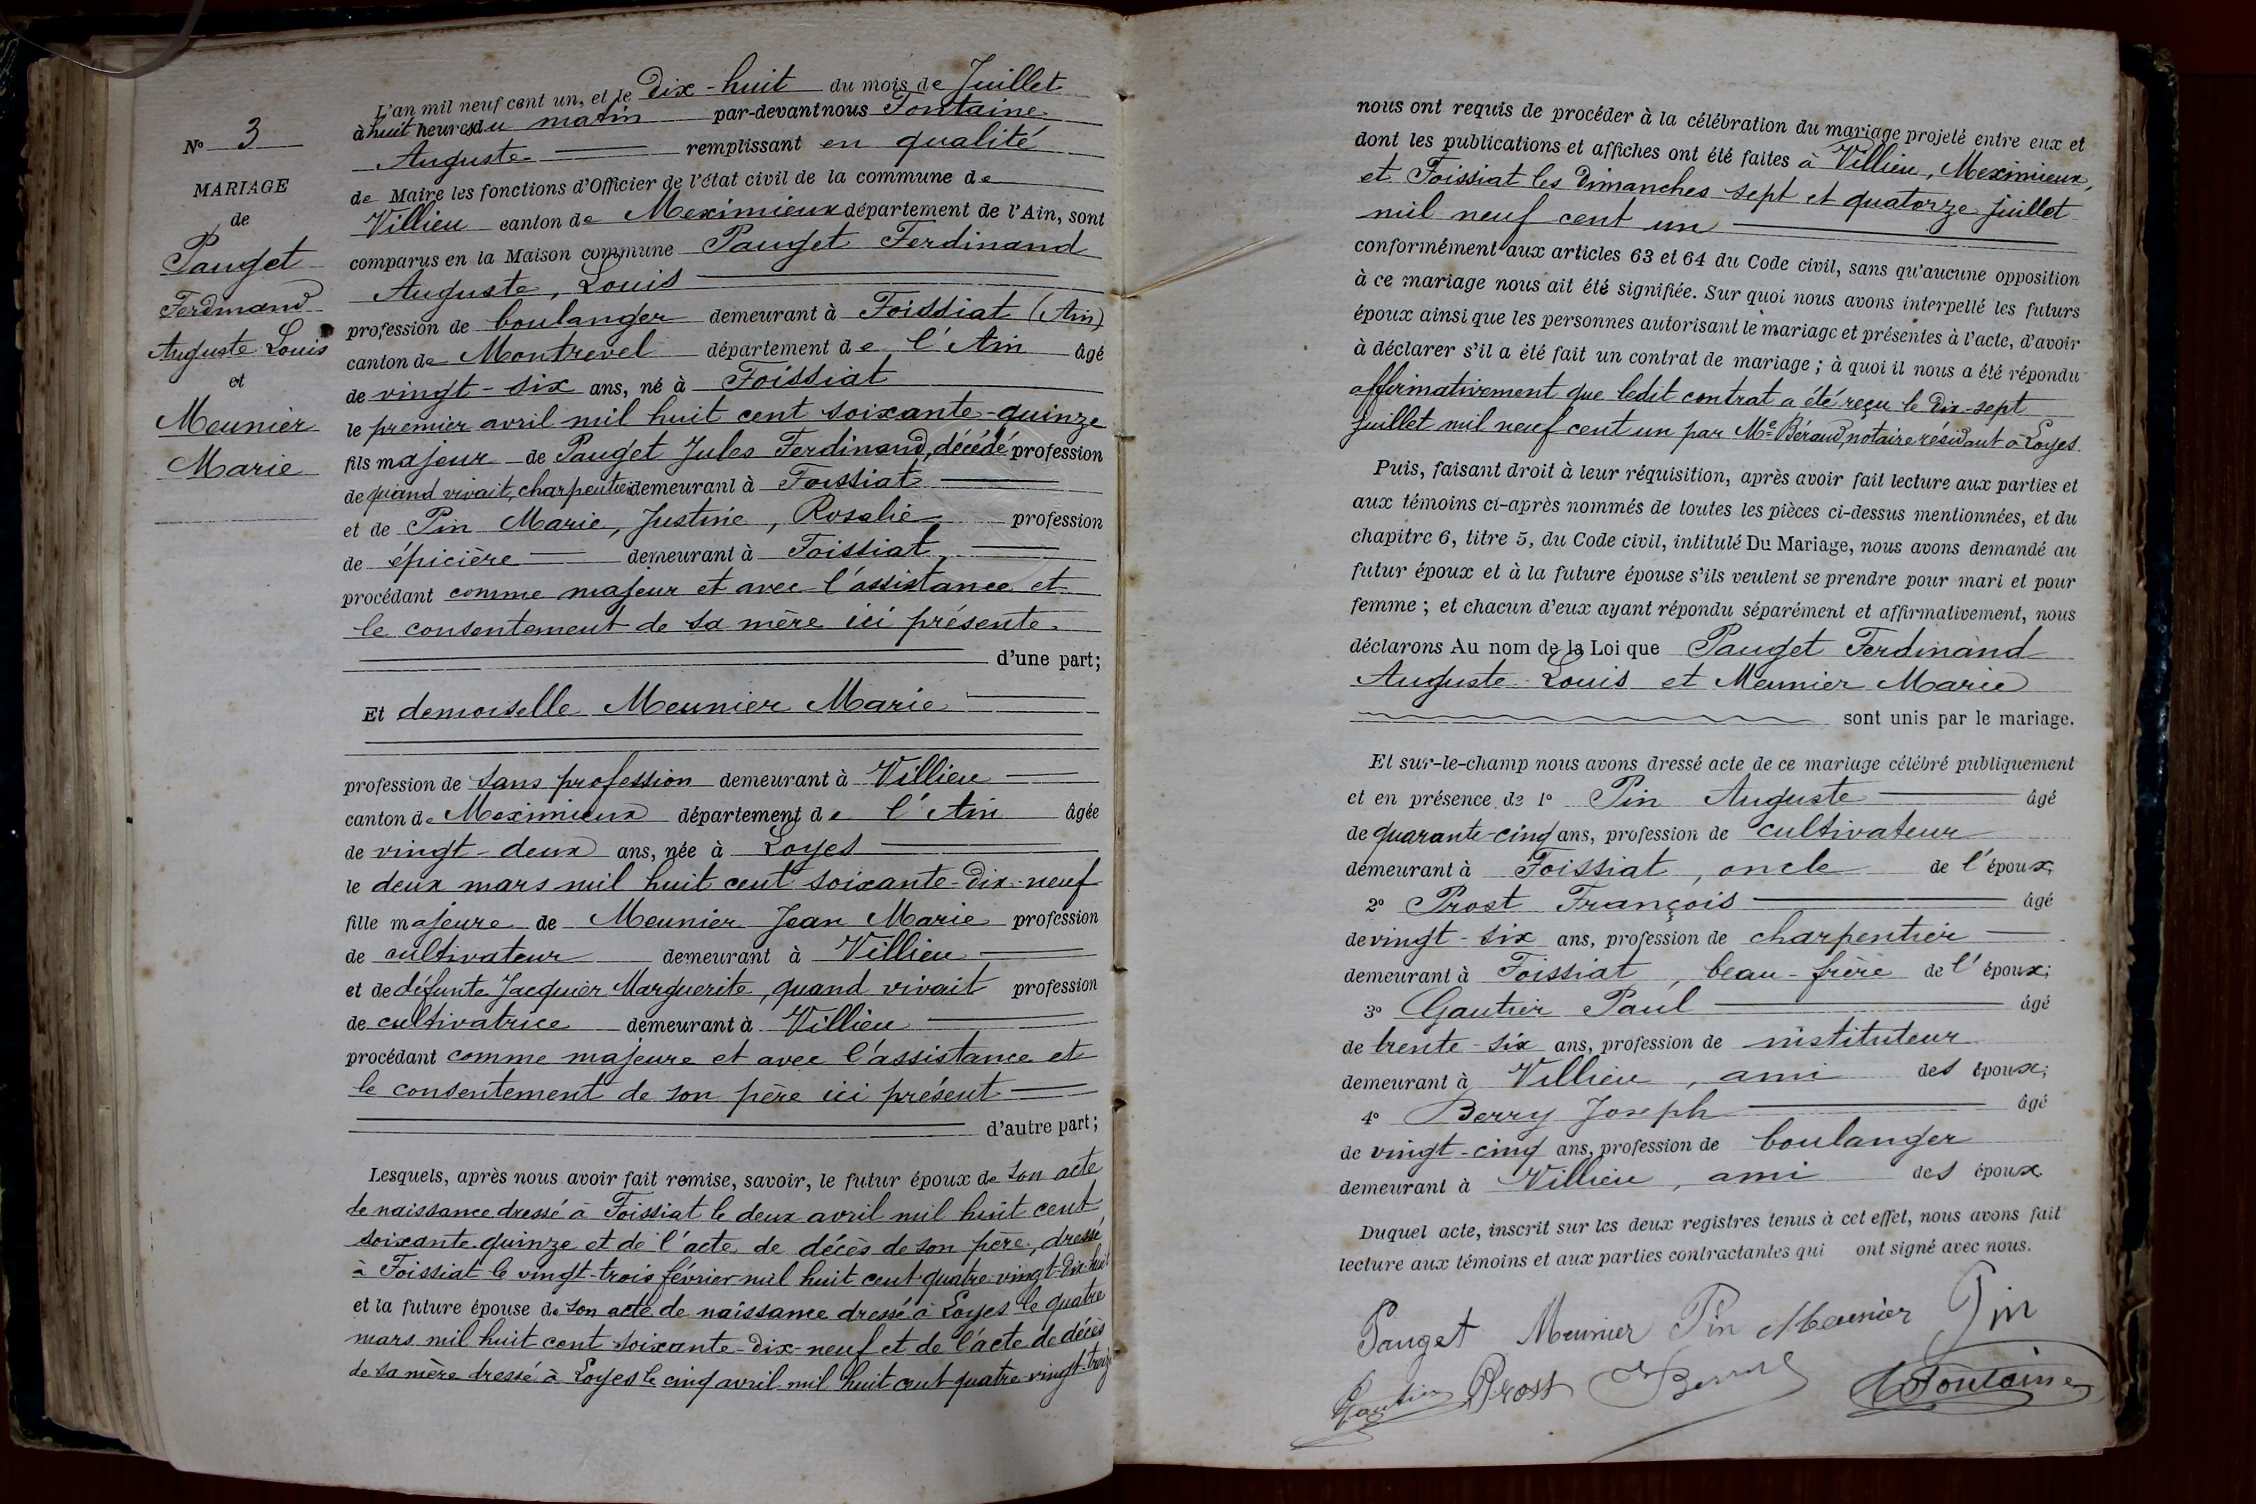 N° 3
MARIAGE
de
Pauget
Ferdinand
Auguste Louis
et
Meunier
Marie
L'an mil neuf cent un, et le Dix-huit du mois de Juillet
à huit heures du matin par-devant nous Fontaine
Auguste remplissant en qualité
de Maire les fonctions d'Officier de l'état civil de la commune de
Villieu canton de Meximieux département de l'Ain, sont
comparus en la Maison commune Pauget Ferdinand
Auguste, Louis
profession de boulanger demeurant à Foissiat (Ain)
canton de Montrevel département de l'Ain âgé
de vingt-six ans, né à Foissiat
le premier avril mil huit cent soixante-quinze
fils majeur de Pauget Jules Ferdinand, décédé profession
de quand vivait, charpentier demeurant à Foissiat
et de Pin Marie, Justine, Rosalie profession
de épicière demeurant à Foissiat
procédant comme majeur et avec l'assistance et
le consentement de sa mère ici présente
d'une part;
Et demoiselle Meunier Marie
profession de sans profession demeurant à Villieu
canton de Meximieux département de l'Ain âgée
de vingt-deux ans, née à Loyes
le deux mars mil huit cent soixante-dix-neuf
fille majeure de Meunier Jean Marie profession
de cultivateur demeurant à Villieu
et de défunte Jacquier Marguerite, quand vivait profession
de cultivatrice demeurant à Villieu
procédant comme majeure et avec l'assistance et
le consentement de son père ici présent
d'autre part;
Lesquels, après nous avoir fait remise, savoir, le futur époux de son acte
de naissance dressé à Foissiat le deux avril mil huit cent
soixante-quinze et de l'acte de décès de son père, dressé
à Foissiat le vingt-trois février mil huit cent quatre-vingt-dix-huit
et la future épouse de son acte de naissance dressé à Loyes le quatre
mars mil huit cent soixante-dix-neuf et de l'acte de décès
de sa mère dressé à Loyes le cinq avril mil huit cent quatre-vingt-treize
nous ont requis de procéder à la célébration du mariage projeté entre eux et
dont les publications et affiches ont été faites à Villieu, Meximieux,
et Foissiat les Dimanches sept et quatorze juillet
mil neuf cent un
conformément aux articles 63 et 64 du Code civil, sans qu'aucune opposition
à ce mariage nous ait été signifiée. Sur quoi nous avons interpellé les futurs
époux ainsi que les personnes autorisant le mariage et présentes à l'acte, d'avoir
à déclarer s'il a été fait un contrat de mariage ; à quoi il nous a été répondu
affirmativement que ledit contrat a été reçu le Dix-sept
juillet mil neuf cent un par Me Béraud, notaire résidant à Loyes.
Puis, faisant droit à leur réquisition, après avoir fait lecture aux parties et
aux témoins ci-après nommés de toutes les pièces ci-dessus mentionnées, et du
chapitre 6, titre 5, du Code civil, intitulé Du Mariage, nous avons demandé au
futur époux et à la future épouse s'ils veulent se prendre pour mari et pour
femme ; et chacun d'eux ayant répondu séparément et affirmativement, nous
déclarons Au nom de la Loi que Pauget Ferdinand
Auguste Louis et Meunier Marie
sont unis par le mariage.
Et sur-le-champ nous avons dressé acte de ce mariage célébré publiquement
et en présence de 1° Pin Auguste âgé
de quarante-cinq ans, profession de cultivateur
demeurant à Foissiat, oncle de l'époux;
2° Prost François âgé
de vingt-six ans, profession de charpentier
demeurant à Foissiat, beau-frère de l'époux;
3° Gautier Paul âgé
de trente-six ans, profession de instituteur
demeurant à Villieu, ami des époux;
4° Berry Joseph âgé
de vingt-cinq ans, profession de boulanger
demeurant à Villieu, ami des époux.
Duquel acte, inscrit sur les deux registres tenus à cet effet, nous avons fait
lecture aux témoins et aux parties contractantes qui ont signé avec nous.
Pauget Meunier Pin Meunier Pin
Gautier Prost Berry Fontaine